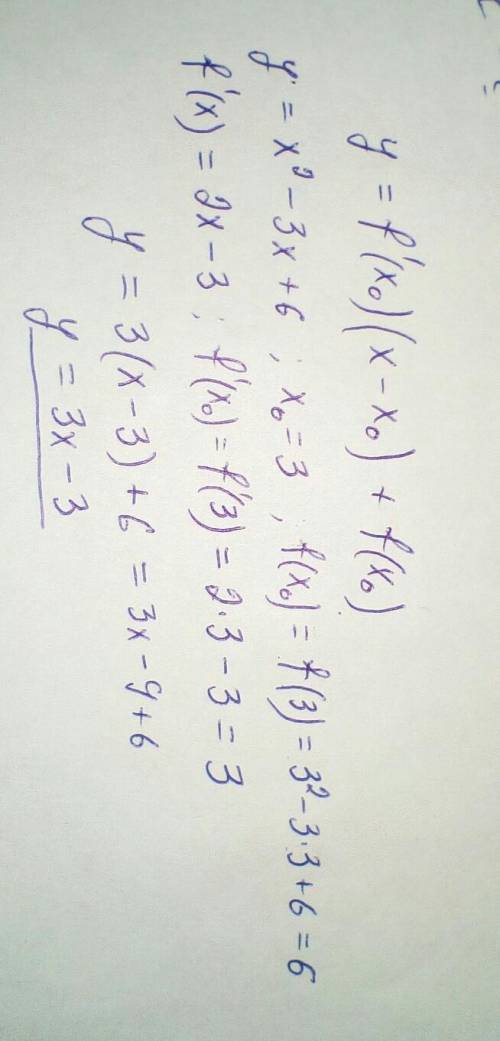 y = f'(x₀)(x - x₀) + f(x₀)
y = x² - 3x + 6 ; x₀ = 3 ; f(x₀) = f(3) = 3² - 3·3 + 6 = 6
f'(x) = 2x - 3 ; f'(x₀) = f'(3) = 2·3 - 3 = 3
y = 3(x - 3) + 6 = 3x - 9 + 6
y = 3x - 3